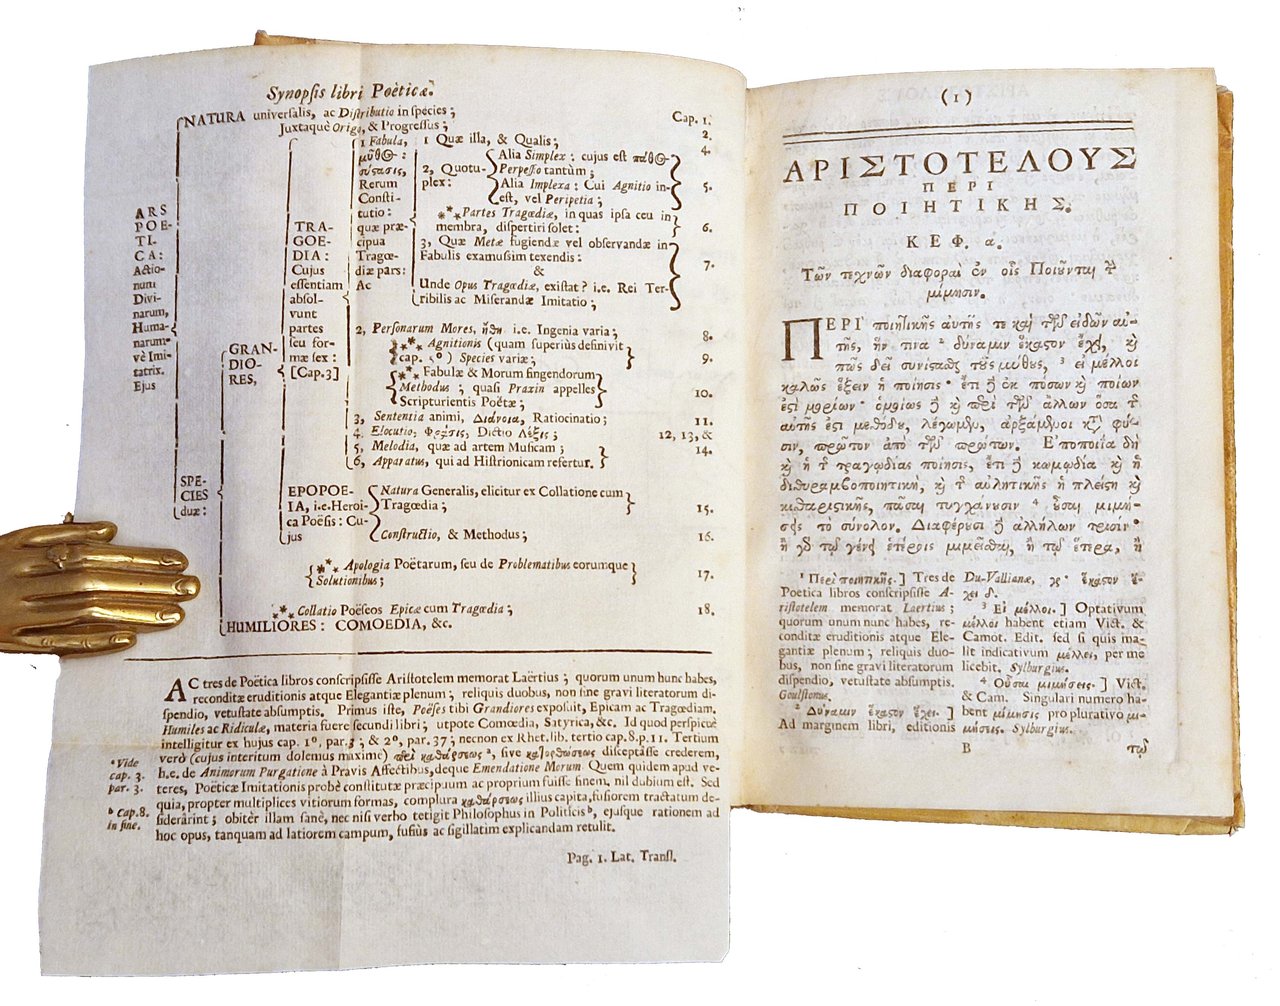 Synopsis libri Poëticæ.
NATURA universalis, ac Distributio in species; Cap. 1.
Juxtaquè Origo, & Progressus; 2.
ARS POE-TI-CA: Actio-num Divi-narum, Huma-narum-vè Imi-tatrix. Ejus
SPE-CIES duæ:
GRAN-DIO-RES,
TRA-GOE-DIA: Cujus essentiam absol-vunt partes seu for-mæ sex: [Cap. 3]
1 Fabula, μῦθος: σύςασις, Rerum Consti-tutio: quæ præ-cipua Tragœ-diæ pars: Ac
1 Quæ illa, & Qualis;
2, Quotu-plex:
Alia Simplex: cujus est πάθος 4.
Perpessio tantùm;
Alia Implexa: Cui Agnitio in- 5.
est, vel Peripetia;
⁂ Partes Tragœdiæ, in quas ipsa ceu in
membra, dispertiri solet: 6.
3, Quæ Metæ fugiendæ vel observandæ in
Fabulis examussim texendis: 7.
&
Unde Opus Tragœdiæ, existat? i.e. Rei Ter-
ribilis ac Miserandæ Imitatio;
2, Personarum Mores, ἤθη i.e. Ingenia varia; 8.
⁂ Agnitionis (quam superiùs definivit
cap. 5º) Species variæ; 9.
⁂ Fabulæ & Morum fingendorum
Methodus; quasi Praxin appelles 10.
Scripturientis Poëtæ;
3, Sententia animi, Διάνοια, Ratiocinatio; 11.
4. Elocutio, Φράσις, Dictio Λέξις; 12, 13, &
5, Melodia, quæ ad artem Musicam; 14.
6, Apparatus, qui ad Histrionicam refertur.
EPOPOE-IA, i.e. Heroi-ca Poësis: Cu-jus
Natura Generalis, elicitur ex Collatione cum
Tragœdia; 15.
Constructio, & Methodus; 16.
⁂ Apologia Poëtarum, seu de Problematibus eorumque
Solutionibus; 17.
⁂ Collatio Poëseos Epicæ cum Tragœdia; 18.
HUMILIORES: COMOEDIA, &c.
AC tres de Poëtica libros conscripsisse Aristotelem memorat Laërtius; quorum unum hunc habes,
reconditæ eruditionis atque Elegantiæ plenum; reliquis duobus, non sine gravi literatorum di-
spendio, vetustate absumptis. Primus iste, Poëses tibi Grandiores exposuit, Epicam ac Tragœdiam.
Humiles ac Ridiculæ, materia fuere secundi libri; utpote Comœdia, Satyrica, &c. Id quod perspicuè
intelligitur ex hujus cap. 1º, par. 3; & 2º, par. 37; necnon ex Rhet. lib. tertio cap. 8. p. 11. Tertium
verò (cujus interitum dolemus maximè) περὶ καθάρσεως ª, sive κατορθώσεως disceptasse crederem,
h.e. de Animorum Purgatione à Pravis Affectibus, deque Emendatione Morum Quem quidem apud ve-
teres, Poëticæ Imitationis probè constitutæ præcipuum ac proprium fuisse finem, nil dubium est. Sed
quia, propter multiplices vitiorum formas, complura καθάρσεως illius capita, fusiorem tractatum de-
siderârint; obitèr illam sanè, nec nisi verbo tetigit Philosophus in Politicis ᵇ, ejusque rationem ad
hoc opus, tanquam ad latiorem campum, fusiùs ac sigillatim explicandam retulit.
ª Vide
cap. 3.
par. 3.
ᵇ Cap. 8.
in fine.
Pag. 1. Lat. Transl.
(1)
ΑΡΙΣΤΟΤΕΛΟΥΣ
ΠΕΡΙ
ΠΟΙΗΤΙΚΗΣ.
ΚΕΦ. ά.
Τῶν τεχνῶν διαφοραὶ ἐν οἷς Ποιοῦνται τὴν
μίμησιν.
ΠΕΡΙ ποιητικῆς αὐτῆς τε καὶ τῶν εἰδῶν αὐ-
τῆς, ἥν τινα ² δύναμιν ἕκαστον ἔχει, καὶ
πῶς δεῖ συνίστασθαι τοὺς μύθους, ³ εἰ μέλλοι
καλῶς ἕξειν ἡ ποίησις· ἔτι δὲ ἐκ πόσων καὶ ποίων
ἐστὶ μορίων· ὁμοίως δὲ καὶ περὶ τῶν ἄλλων ὅσα τῆς
αὐτῆς ἐστι μεθόδου, λέγωμεν, ἀρξάμενοι κατὰ φύ-
σιν, πρῶτον ἀπὸ τῶν πρώτων. Ἐποποιία δὴ
καὶ ἡ τῆς τραγῳδίας ποίησις, ἔτι δὲ κωμῳδία καὶ ἡ
διθυραμβοποιητικὴ, καὶ τῆς αὐλητικῆς ἡ πλείστη καὶ
κιθαριστικῆς, πᾶσαι τυγχάνουσιν ⁴ οὖσαι μιμή-
σεις τὸ σύνολον. Διαφέρουσι δὲ ἀλλήλων τρισίν·
ἢ γὰρ τῷ γένει ἑτέροις μιμεῖσθαι, ἢ τῷ ἕτερα, ἢ
¹ Περὶ ποιητικῆς.] Tres de
Poetica libros conscripsisse A-
ristotelem memorat Laertius;
quorum unum nunc habes, re-
conditæ eruditionis atque Ele-
gantiæ plenum; reliquis duo-
bus, non sine gravi literatorum
dispendio, vetustate absumptis.
Goulstonus.
² Δύναμιν ἕκαστον ἔχει.]
Ad marginem libri, editionis
Du-Vallianæ, γρ· ἕκαστον ἔ-
χει δ.
³ Εἰ μέλλοι.] Optativum
μέλλοι habent etiam Vict. &
Camot. Edit. sed si quis ma-
lit indicativum μέλλει, per me
licebit. Sylburgius.
⁴ Οὖσαι μιμήσεις.] Vict.
& Cam. Singulari numero ha-
bent μίμησις pro plurativo μι-
μήσεις. Sylburgius.
B τῷ